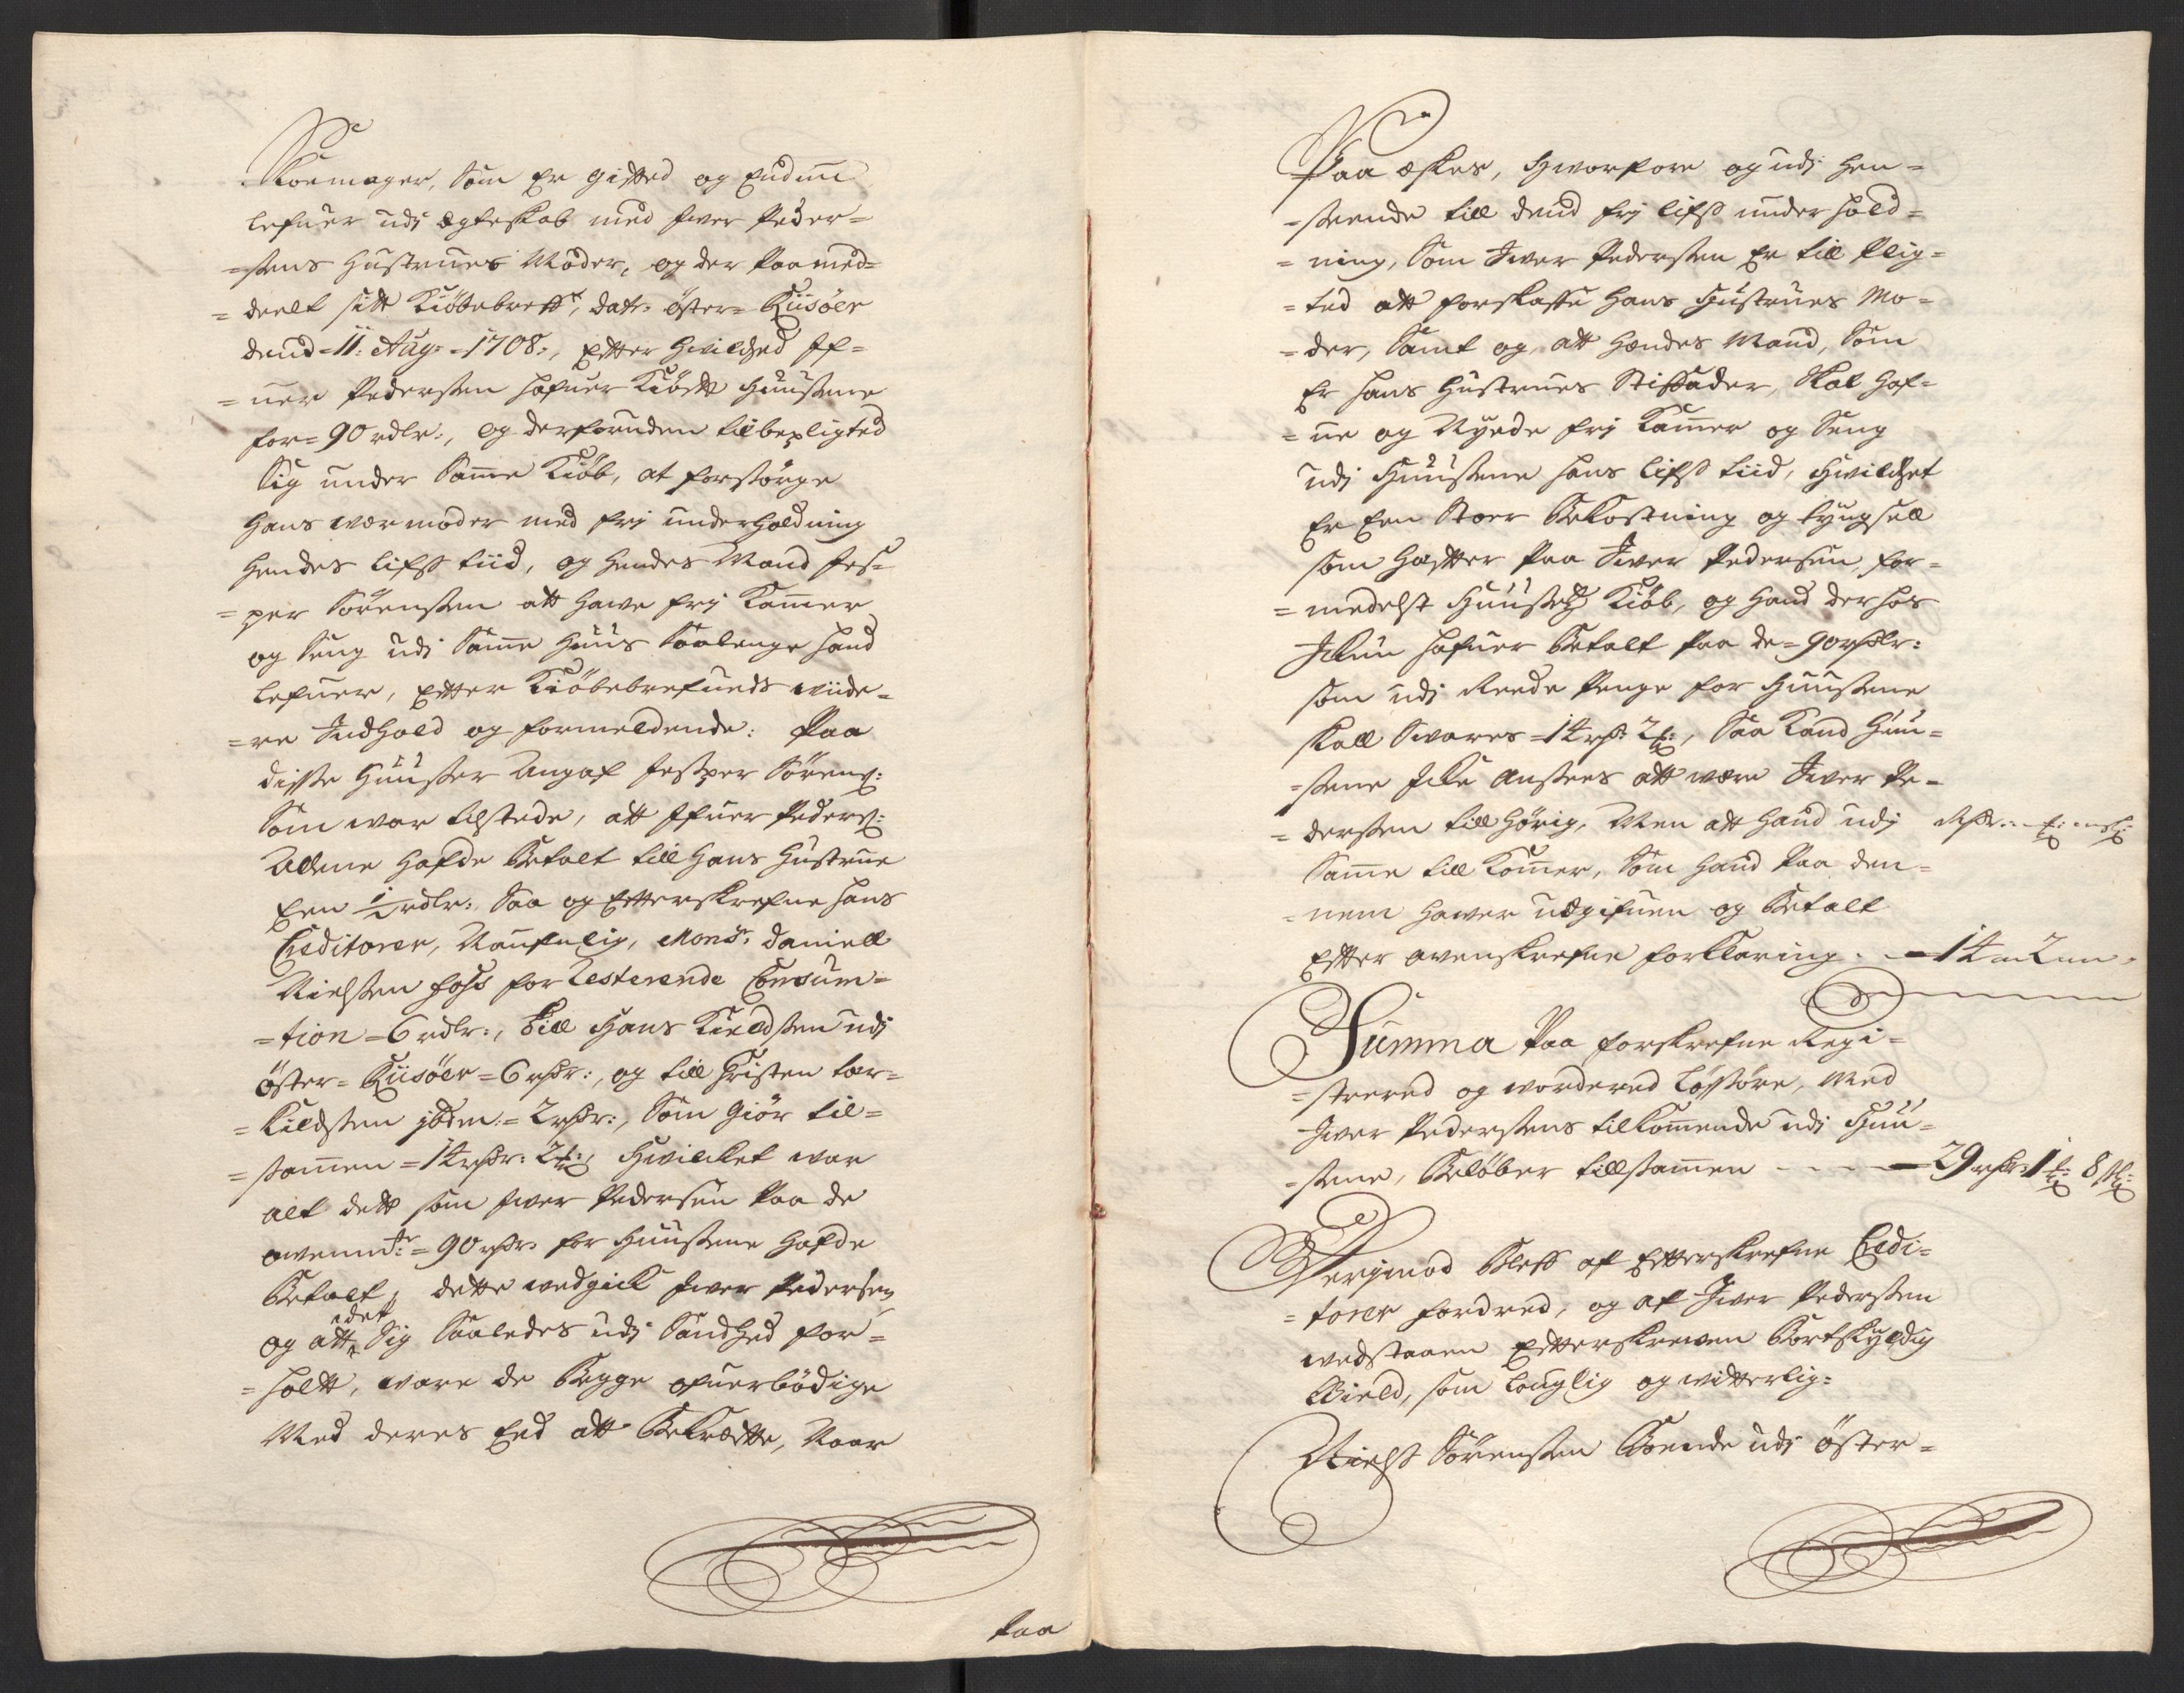 Skoemager, Som Er gifted og Endnu
lefuer udj Egteskab med Iver Peder=
=sens Hustrues Moder, og der Paa med=
=deelt sitt Kiöbebreff, datr. öster= Riisöer
dend =11: Aug: =1708:, Efter Hvilched If=
=uer Pedersen hafuer Kiöbt Huusene
for= 90 rdlr:, og derforuden tilbepligted
Sig under Samme Kiöb, at forsörge
Hans wermoder med frj underholdning
Hendes lifs tiid, og Hendes Mand Jes=
=per Sörensen att Have frj Kammer
og Seng udj Samme Huus Saalenge Hand
lefuer, Efter Kiöbebrefuets wiide=
=re Indhold og formeldende: Paa
disse Huuser Angaf Jesper Sörens:
Som war tilstede, att Ifuer Peders:
Allene Hafde Betalt till Hans Hustrue
Een ½ rdlr: Saa og Efterskrefne Hans
Creditorer, Naufnlig, Monsr: Daniell
Nielsen Foss for Resterende Consum=
=tion =6 rdlr:, Till Hans Kieldsen udj
öster= Riisöer =6 rdr:, og till Kristen tor=
=Kildsen ibdm: =2 rdr:, Som Giör til=
=sammen =14 rdr: 2 ort:, Hvilcket war
alt dett som Iver Pedersen Paa de
ovenmte: =90 rdr: for Huusene Hafde
Betalt, dette wedgick Iver Pedersen
og att det Sig Saaledes udj Sandhed for=
=holtt, ware de Begge ofuerbödige
Med deres Eed att Bekræfte, Naar
Paa
Paa æskes, Hvorfore og udj Hen=
=seende till dend frj lifs under hold=
=ning, Som Iver Pedersen Er till Plig=
=ted att forskaffe Hans Hustrues Mo=
=der, Samt og att Hendes Mand, Som
Er Hans Hustrues Stiffader, Skal Haf=
=ue og Nyde frj Kammer og Seng
udj Huusene Hans lifs tiid, Hvilchet
Er Een Stoer Bekostning og tyngsell
som Hefter Paa Iver Pedersen for=
=medelst Huusets Kiöb, og Hand der hos
Ickun hafuer Betalt Paa de =90 rdlr:
som udj Reede Penge for Huusene
skall Svares =14 rdr 2 ort:, Saa Kand Huu=
=sene Icke Ansees att være Iver Pe=
=dersen till Hörig, Men att Hand udj Rdr: ort: s:
Samme till Kommer, Som Hand Paa den=
=nem Haver udgifuen og Betalt
Efter ovenskrefne forklaring. =14 „ 2 „
Summa Paa forskrefne Regi=
=strered og wordered lössöre, Med
Iver Pedersens tilkommende udj Huu=
=sene, Belöber tillsammen - - - =29 rdr: 1 ort: 8 s:
Herimod Bleff af Efterskrefne Credi=
=torer fordred, og af Iver Pedersen
wedstaaen Efterskrewen Bortskyldig
Gield, som louglig og witterlig:
Niels Sörensen Boende udj öster=